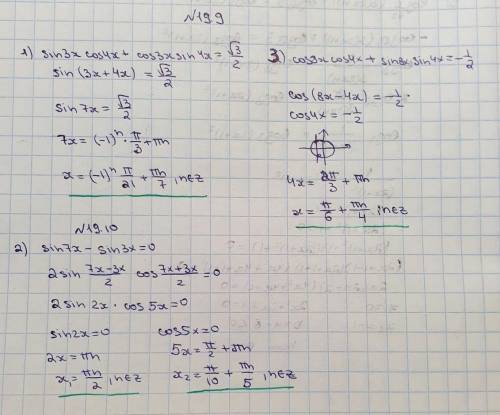 №19.9
1) sin3x cos4x + cos3x sin4x = √3/2
sin (3x+4x) = √3/2
sin7x = √3/2
7x = (-1)ⁿ · π/3 + πn
x = (-1)ⁿ π/21 + πn/7, n∈z
3) cos8x cos4x + sin8x sin4x = -1/2
cos(8x-4x) = -1/2.
cos4x = -1/2
4x = 2π/3 + πn
x = π/6 + πn/4, n∈z
№19.10
2) sin7x - sin3x = 0
2sin (7x-3x)/2 cos (7x+3x)/2 = 0
2sin 2x · cos 5x = 0
sin2x = 0
2x = πn
x₁ = πn/2, n∈z
cos5x = 0
5x = π/2 + πn
x₂ = π/10 + πn/5, n∈z